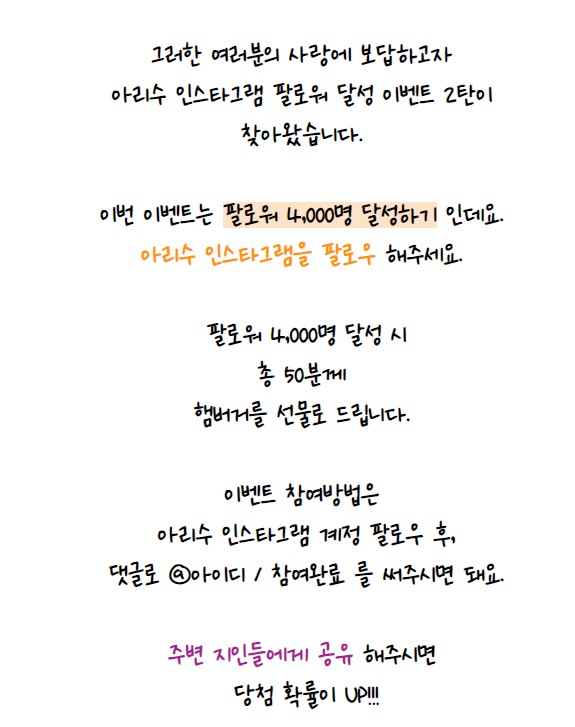 그러한 여러분의 사랑에 보답하고자
아리수 인스타그램 팔로워 달성 이벤트 2탄이
찾아왔습니다.
이번 이벤트는 팔로워 4,000명 달성하기 인데요.
아리수 인스타그램을 팔로우 해주세요.
팔로워 4,000명 달성 시
총 50분께
햄버거를 선물로 드립니다.
이벤트 참여방법은
아리수 인스타그램 계정 팔로우 후,
댓글로 @아이디 / 참여완료 를 써주시면 돼요.
주변 지인들에게 공유 해주시면
당첨 확률이 UP!!!